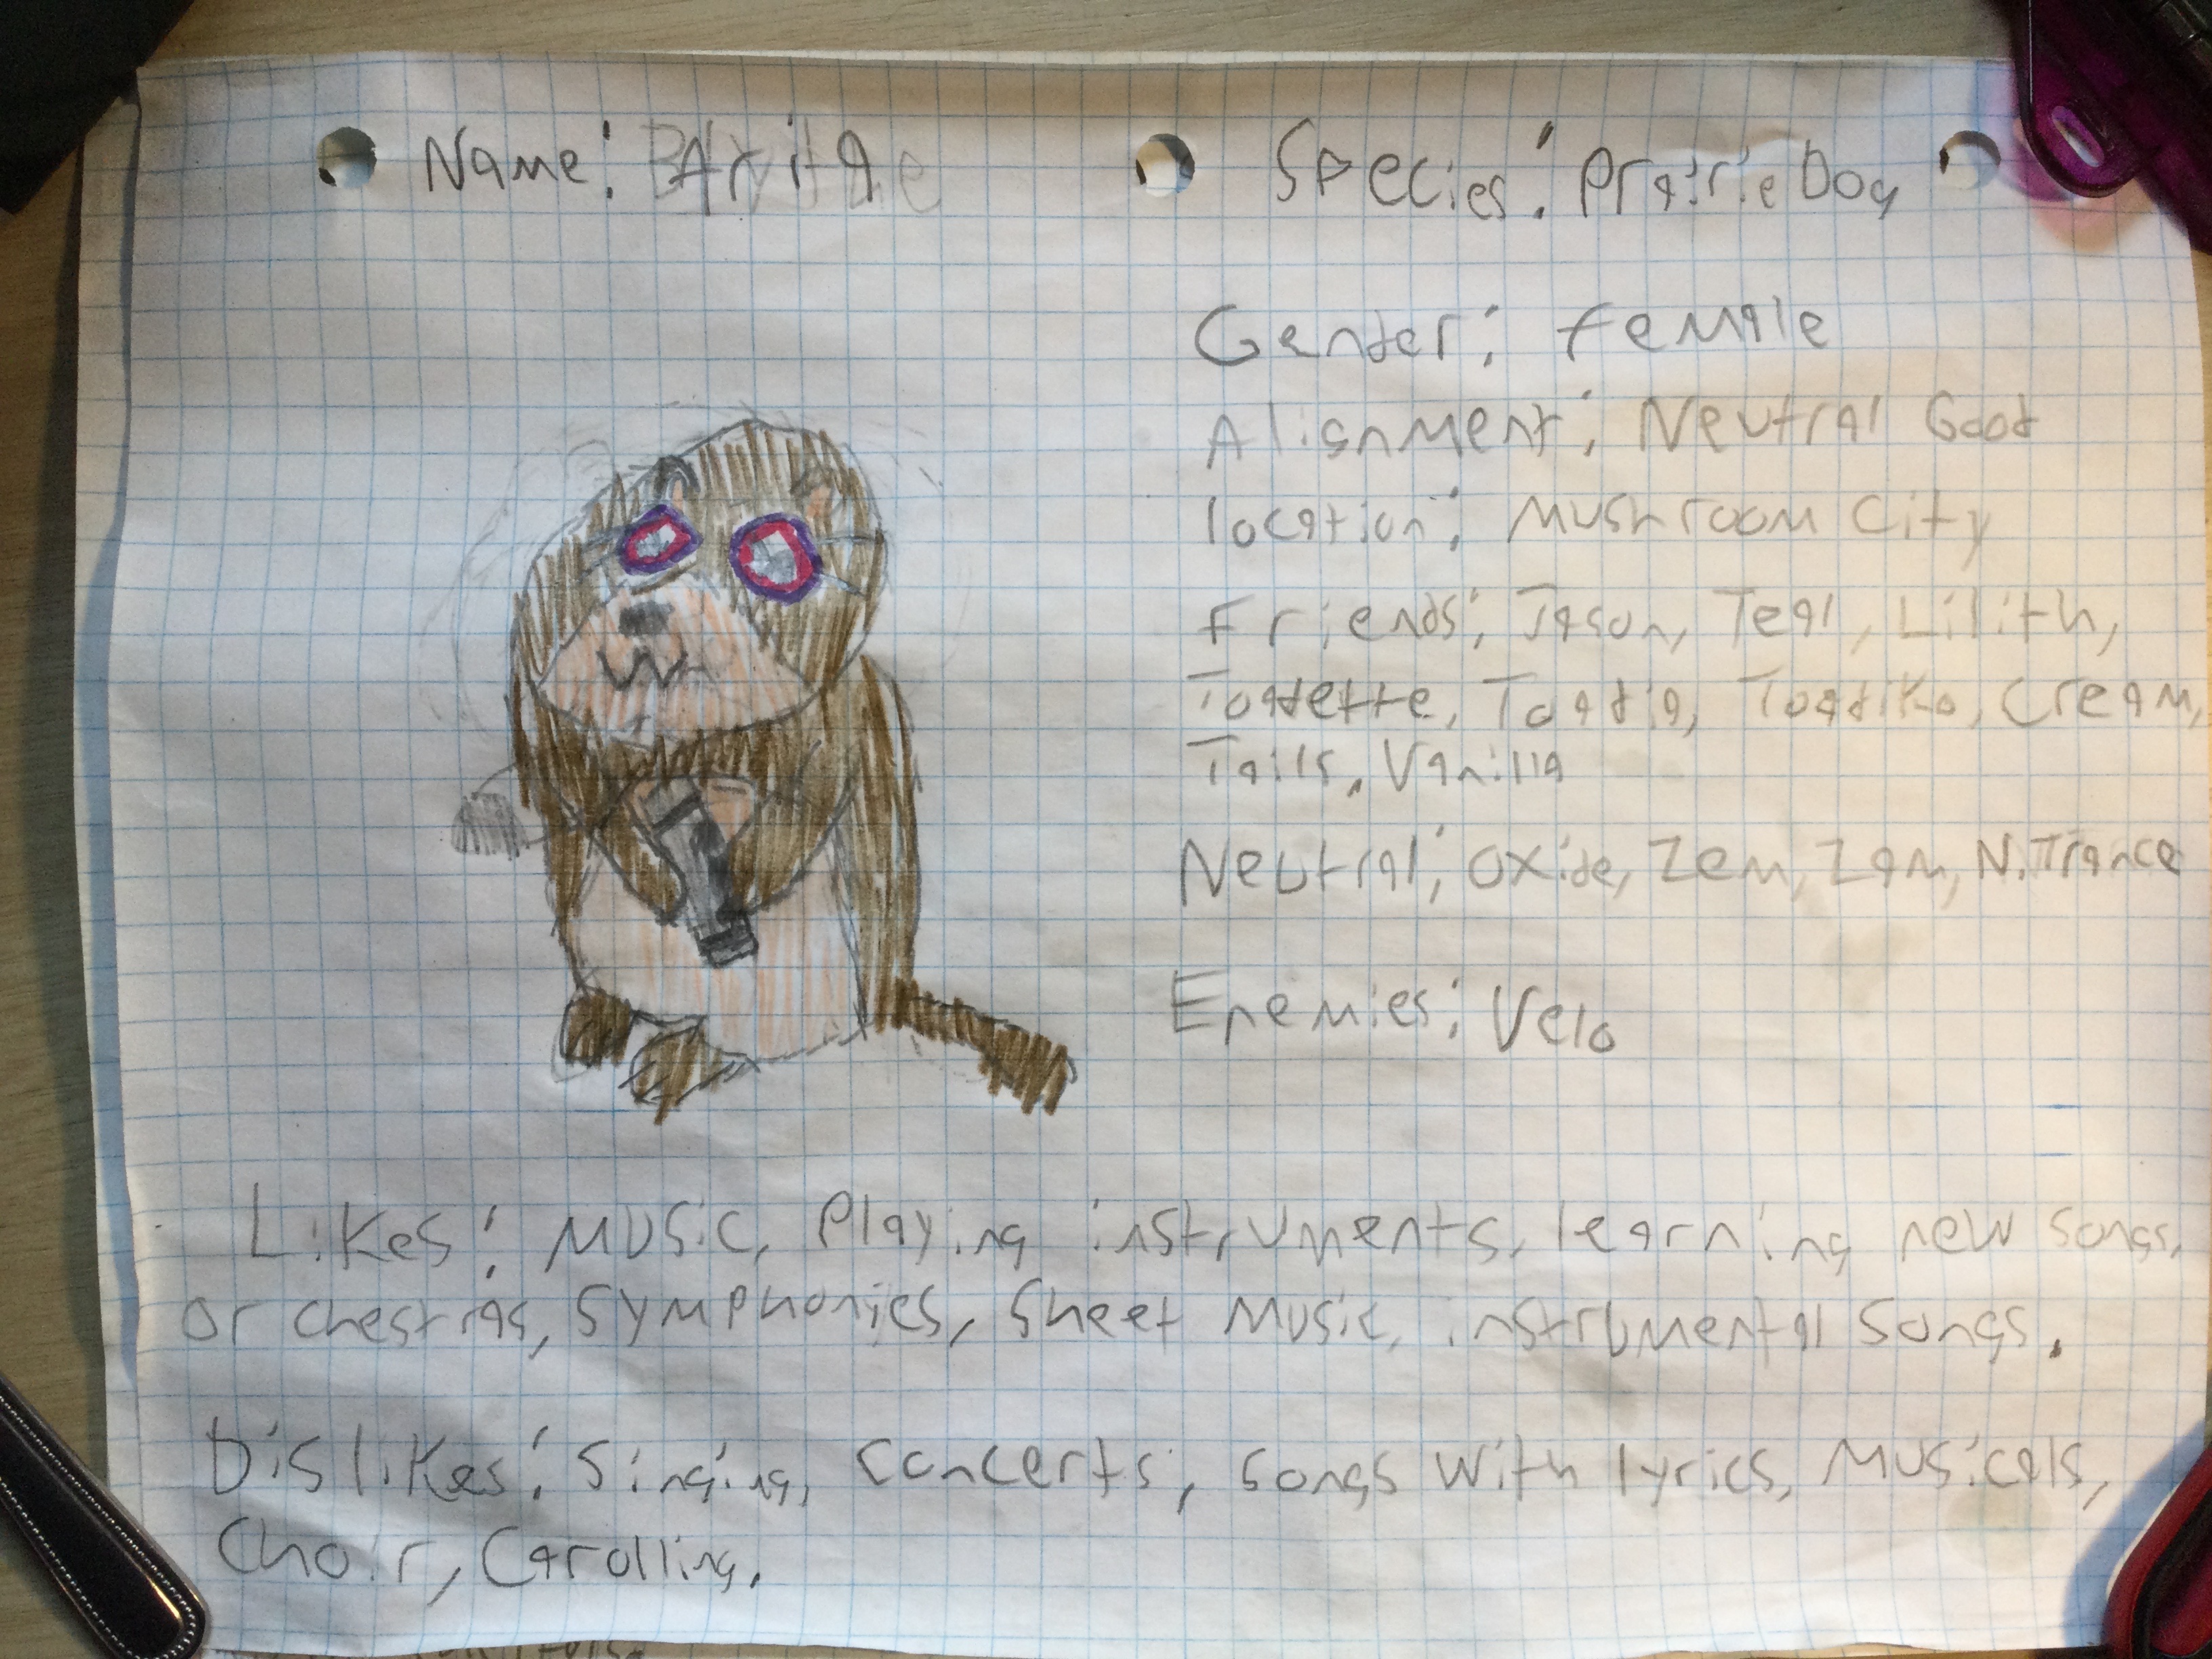 Name: Aria
Species: Prairie Dog
Gender: female
Alignment: Neutral Good
location: Mushroom City
Friends: Jason, Teal, Lilith,
Toadette, Toadia, Toadiko, Cream,
Tails, Vanilla
Neutral: Oxide, Zem, Zam, N. Trance
Enemies: Velo
Likes: Music, Playing instruments, learning new songs,
orchestras, Symphonies, Sheet Music, instrumental Songs.
Dislikes: Singing, Concerts, Songs With lyrics, Musicals,
Choir, Carolling.